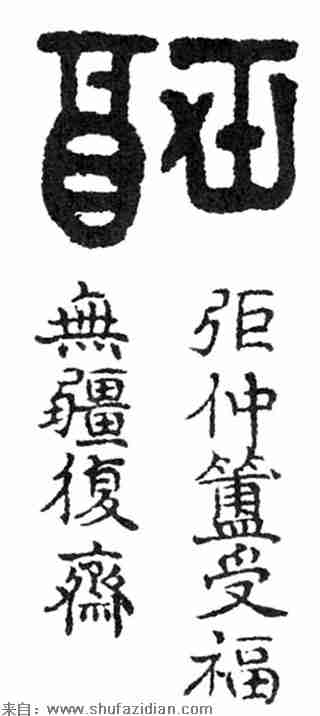 弡仲簠受福
無疆復齋
来自：www.shufazidian.com